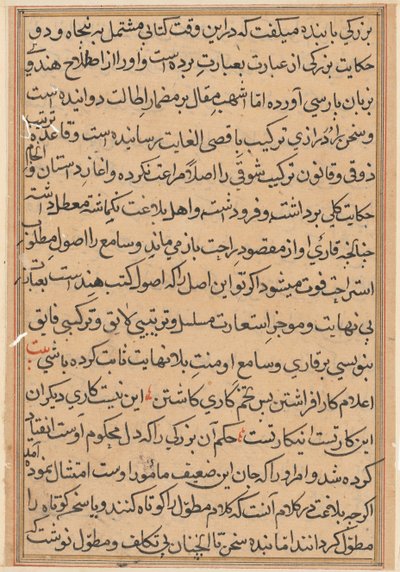 بزرکی با بنده میکفت که در این وقت کتابی مشتمل بر پنجاه و دو
حکایت بزرکی از عبارت بعبارت برده است و او را از اصطلاح هندوی
بزبان پارسی آورده اما اشهب مقال بر مضمار اطالت دوانیده است
و سخن را در درازی ترکیب باقصی الغایت رسانیده است و قاعده ترتیب
ذوقی و قانون ترکیب شوقی را اصلا مراعت نکرده و اغاز داستان و انجام
حکایت کلی برداشت و فرود داشت و اهل بلاغت نکماشته معطل داشته
جنانجه قاری او از مقصود راحت باز می ماند و سامع را اصول مطلوب
استراحت فوت میشود اکر تو این اصل را که اصول کتب هند است بعبارت
بی نهایت و موجز استعارت مسلسل و ترتیبی لایق و ترکیبی فایق
بنویسی بر قاری و سامع او منت بلا نهایت ثابت کرده باشی بیت
اعلام کار افراشتن بس تخم کاری کاشتن این نیست کاری دیکران
این کار تست این کار تست حکم آن بزرکی را که دل محکوم اوست انقیاد
کرده شد و امر او را که جان این ضعیف مامور اوست امتثال نموده آمد
اکرجه بلاغت در کلام آنست که کلام مطول را کوتاه کنند و یا سخن کوتاه را
مطول کردانند اما بنده سخن تا آنچنان بی تکلف و مطول نوشت که